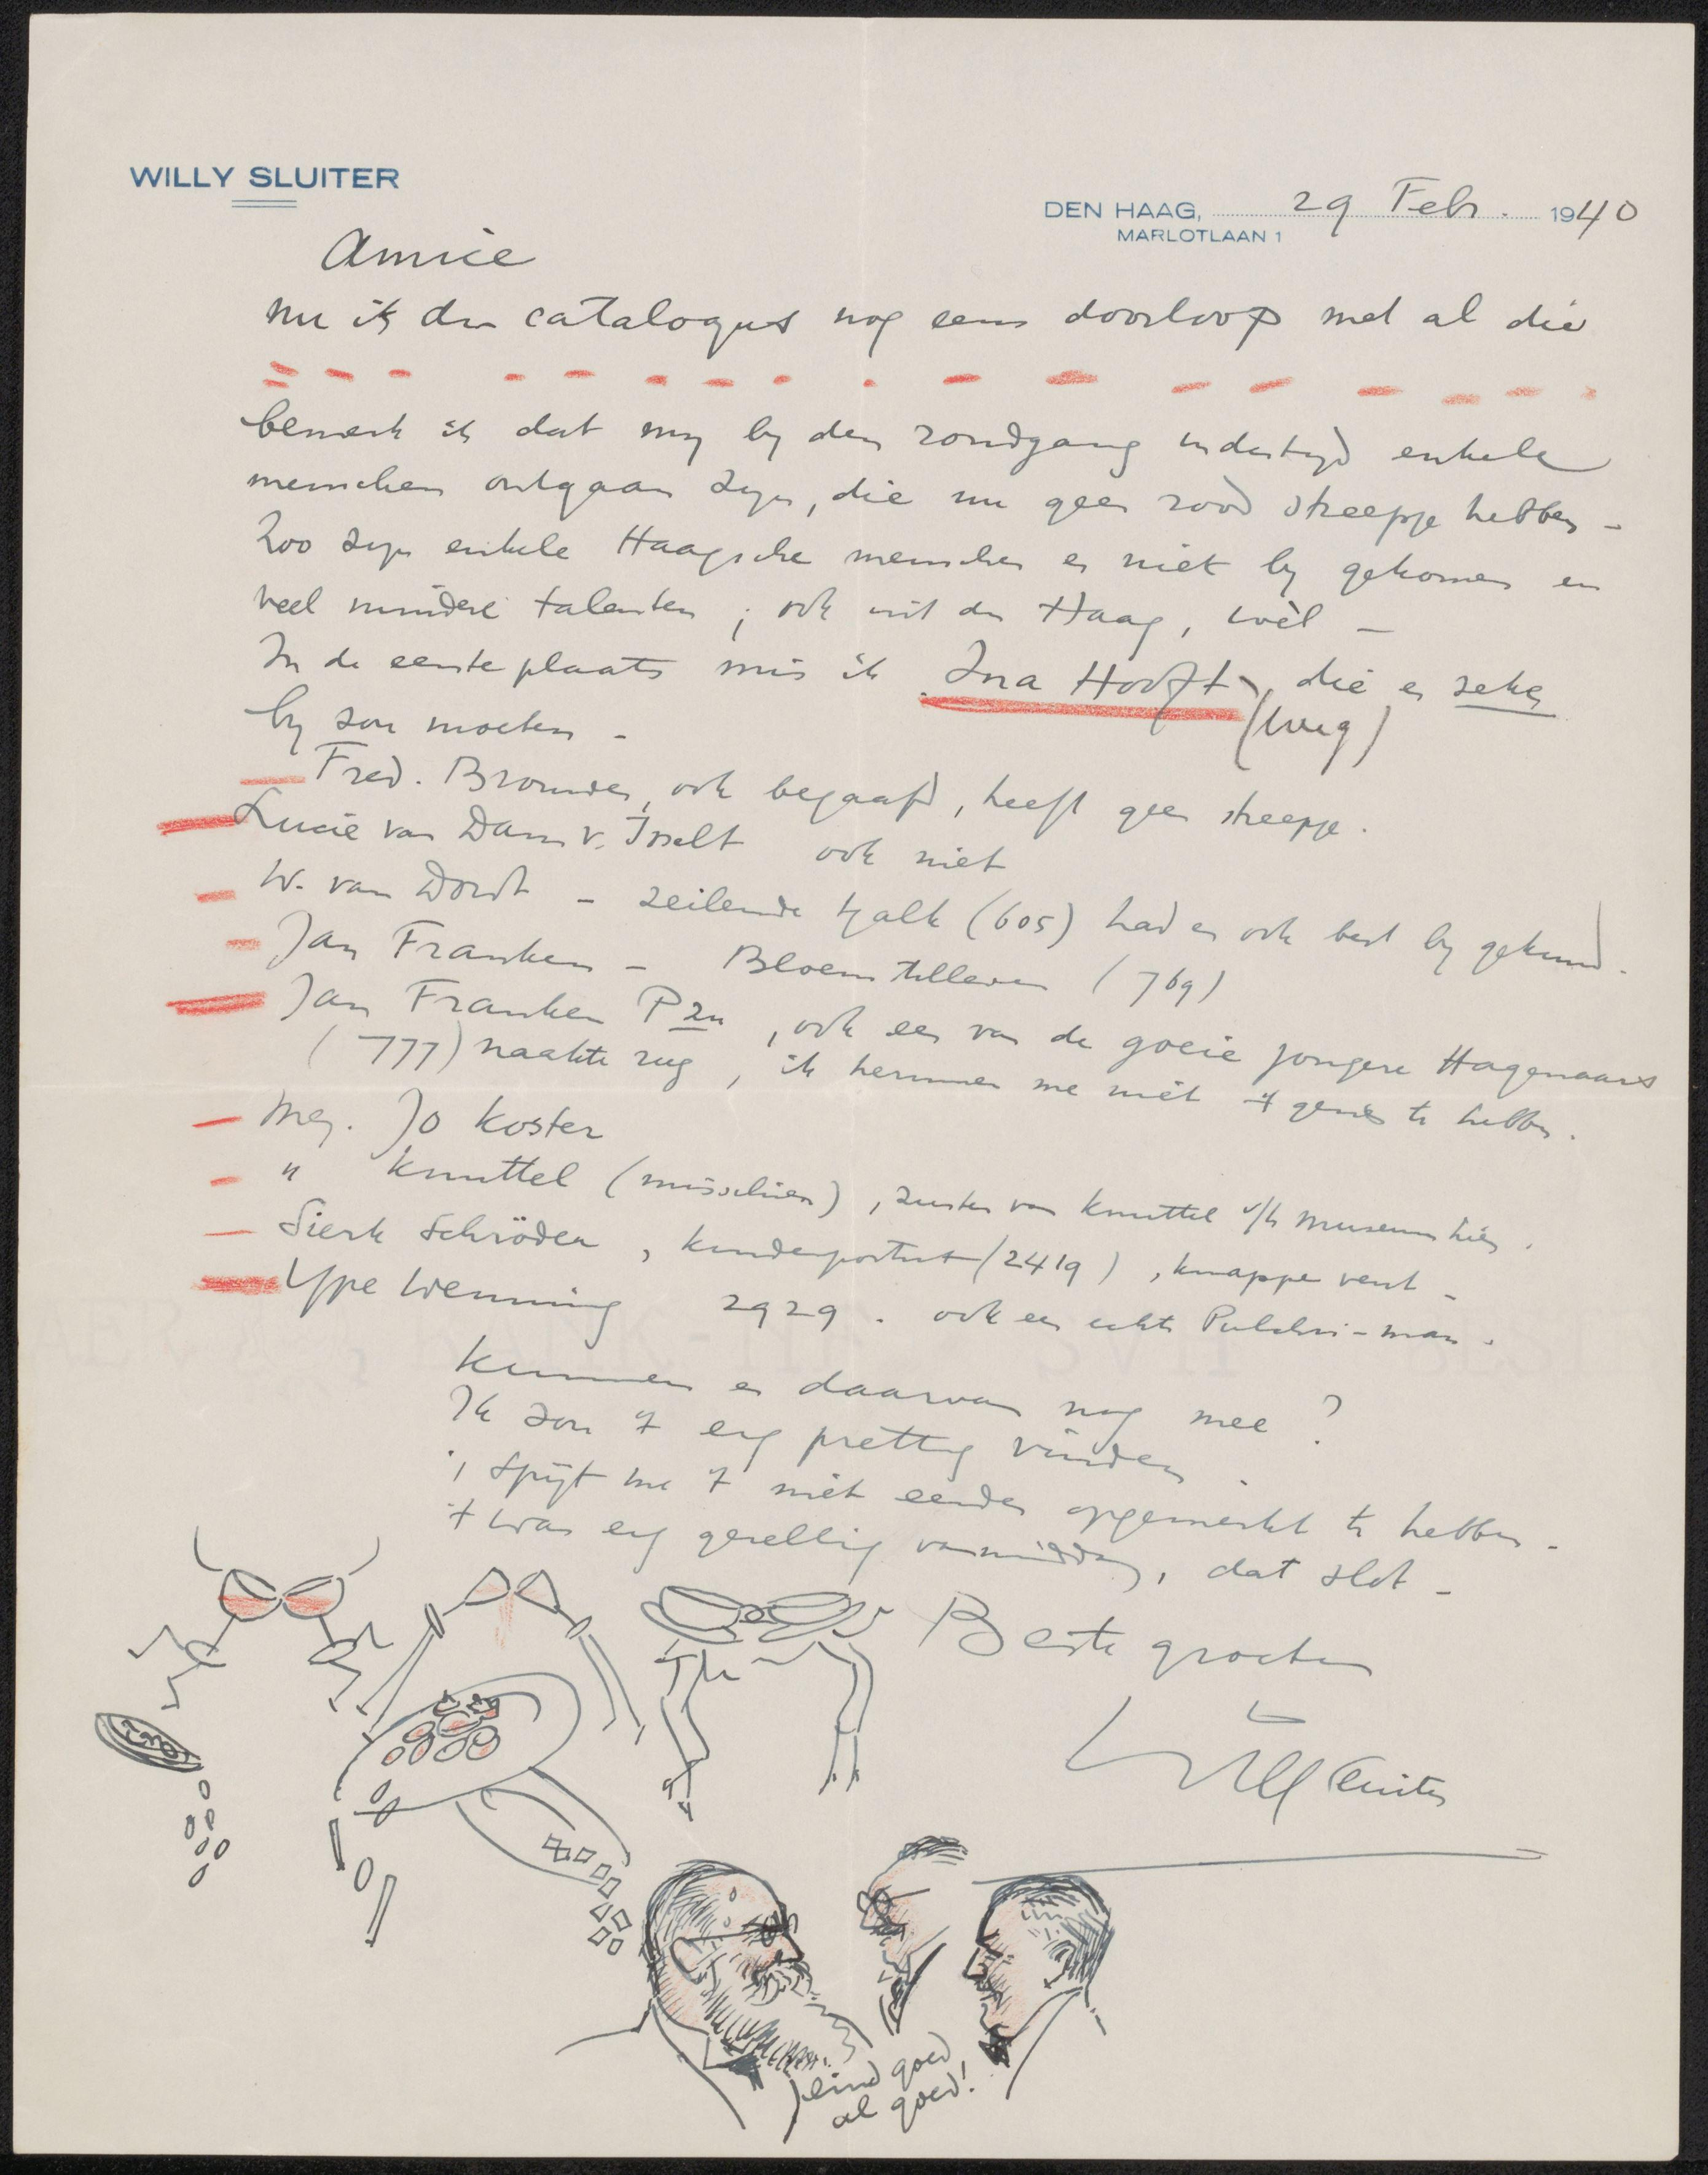 WILLY SLUITER
DEN HAAG, 29 Febr. 1940
MARLOTLAAN 1
Amice
nu ik den catalogus nog eens doorloop met al die
bemerk ik dat my by den rondgang indertyd enkele
menschen ontgaan zyn, die nu geen rood streepje hebben -
Zoo zyn enkele Haagsche menschen er niet by gekomen en
veel mindere talenten, ook uit den Haag, wèl -
In de eerste plaats mis ik Ina Hooft, die er zeker
(weg)
by zou moeten -
Fred. Brouwer, ook begaafd, heeft geen streepje.
Lucie van Dam v. Isselt ook niet
W. van Dordt - zeilende tjalk (605) had er ook best by gekund.
Jan Franken - Bloem stilleven (769)
Jan Franken Pzn, ook een van de goeie jongere Hagenaars
(777) naakte rug, ik herinner me niet 't gezien te hebben.
Mej. Jo Koster
" Knuttel (misschien), zuster van Knuttel v/h Museum hier.
Sierk Schröder, kinderportret (2419), knappe vent -
Ype Wenning 2929. ook een echte Pulchri-man.
Kunnen er daarvan nog mee?
Ik zou 't erg prettig vinden.
't spijt me 't niet eerder opgemerkt te hebben -
't was erg gezellig vanmiddag, dat slot -
Beste groeten
Will Sluiter
eind goed
al goed!